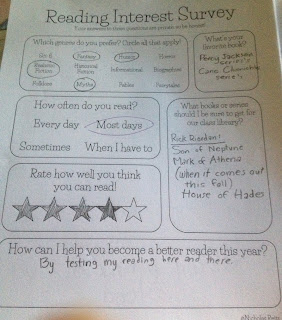 Reading Interest Survey
Your answers to these questions are private so be honest!
Which genre do you prefer? Circle all that apply!
Sci-fi Fantasy Mystery Humor
Realistic Fiction Historical Fiction Informational Biographies
Folktales Myths Fables Fairytales
What's your favorite book?
Percy Jackson series
Cane Chronicles series
How often do you read?
Every day Most days
Sometimes When I have to
What books or series should I be sure to get for our class library?
Rick Riordan!
Son of Neptune
Mark of Athena
(when it comes out
this fall)
House of Hades
Rate how well you think
you can read!
How can I help you become a better reader this year?
By testing my reading here and there.